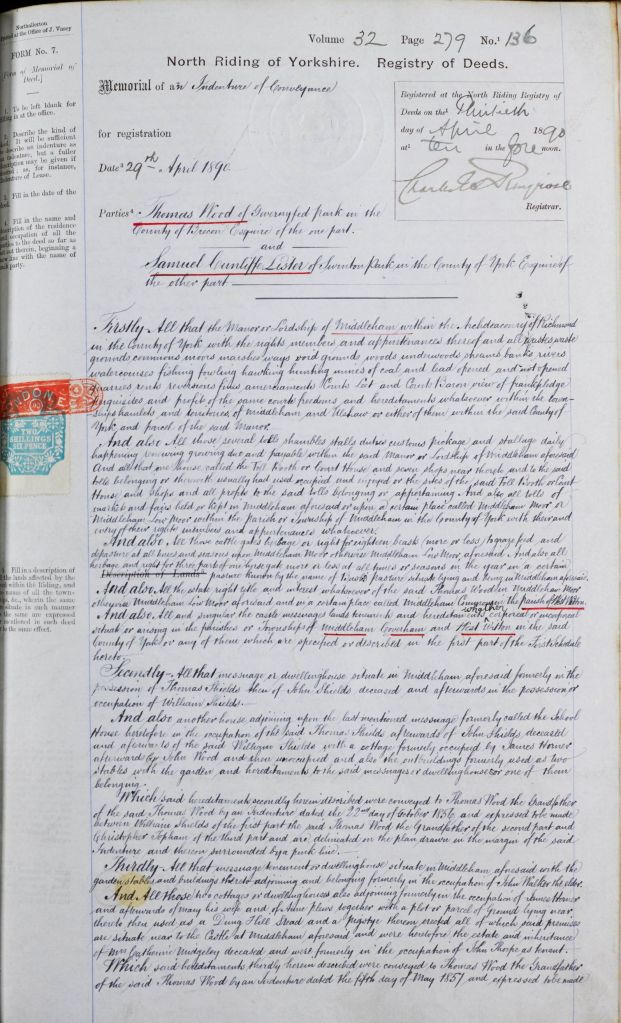 Northallerton
Printed at the Office of J. Vasey
FORM No. 7.
[Form of Memorial of Deed.]
1. To be left blank for
filling in at the office.
2. Describe the kind of
deed. It will be sufficient
to describe as indenture
an indenture, but a fuller
description may be given if
desired: as, for instance,
Indenture of Lease.
3. Fill in the date of the
deed.
4. Fill in the name and
description of the residence
and occupation of all the
parties to the deed so far as
set out therein, beginning a
new line with the name of
each party.
LONDON
TWO
SHILLINGS
SIX PENCE
5. Fill in a description of
the lands affected by the
Volume 32 Page 279 No.¹ 136
North Riding of Yorkshire. Registry of Deeds.
Memorial of an Indenture of Conveyance
for registration
Date³ 29th April 1890
Registered at the North Riding Registry of
Deeds on the¹ Thirtieth
day of April 1890
at¹ ten in the fore noon.
Registrar.
Parties⁴ Thomas Wood of Gwernyfed park in the
County of Brecon Esquire of the one part.
and
Samuel Cunliffe Lister of Swinton Park in the County of York Esquire of
the other part
Firstly All that the Manor or Lordship of Middleham within the Archdeaconry of Richmond
in the County of York with the rights, members and appurtenances thereof and all wastes waste
grounds commons moors marshes ways void grounds woods underwoods streams banks rivers
watercourses fishing fowling hawking hunting mines of coal and lead opened and not opened
quarries rents reversions fines amerciaments Courts Leet and Courts Baron view of frankpledge
perquisites and profits of the same courts freedoms and hereditaments whatsoever within the town-
ships hamlets and territories of Middleham and Ulshaw or either of them within the said County of
York and parcel of the said Manor.
And also All those several tolls shambles stalls duties customs pickage and stallage daily
happening renewing growing due and payable within the said Manor or Lordship of Middleham aforesaid
And all that one House called the Toll Booth or Court House and seven shops near thereto and to the said
tolls belonging or therewith usually had used occupied and enjoyed or the sites of the said Toll Booth or Court
House and shops and all profits to the said tolls belonging or appertaining And also all tolls of
markets and fairs held or kept in Middleham aforesaid or upon a certain place called Middleham Moor or
Middleham Low Moor within the Parish or Township of Middleham in the County of York with their and
every of their rights members and appurtenances whatsoever.
And also All those cattle gates herbage or right for eighteen beasts (more or less) to graze feed and
depasture at all times and seasons upon Middleham Moor otherwise Middleham Low Moor aforesaid. And also all
herbage and right for three parts of one horse gate more or less at all times or seasons in the year in a certain
Description of Lands⁵ pasture known by the name of Pasture situate lying and being in Middleham aforesaid.
And also All the estate right title and interest whatsoever of the said Thomas Wood in Middleham Moor
otherwise Middleham Low Moor aforesaid and in a certain place called Middleham in the parish of West Witton.
And also All and singular the castle messuages lands tenements and hereditaments whether corporeal or incorporeal
situate or arising in the parishes or Townships of Middleham Coverham and West Witton in the said
County of York or any of them which are specified or described in the first part of the First Schedule
hereto.
Secondly All that messuage or dwellinghouse situate in Middleham aforesaid formerly in the
possession of Thomas Shields then of John Shields deceased and afterwards in the possession or
occupation of William Shields.
And also another house adjoining upon the last mentioned messuage formerly called the School
House heretofore in the occupation of the said Thomas Shields afterwards of John Shields deceased
and afterwards of the said William Shields with a cottage formerly occupied by James Horner
afterwards by John Wood and then unoccupied and also the outbuildings formerly used as two
stables with the garden and hereditaments to the said messuages or dwellinghouses or one of them
belonging.
Which said hereditaments secondly herein described were conveyed to Thomas Wood the Grandfather
of the said Thomas Wood by an Indenture dated the 22nd day of October 1856 and expressed to be made
between William Shields of the first part the said Thomas Wood the Grandfather of the second part and
Christopher Topham of the third part and are delineated on the plan drawn in the margin of the said
Indenture and therein surrounded by a pink line.
Thirdly All that messuage tenement or dwellinghouse situate in Middleham aforesaid with the
garden stables and buildings thereto adjoining and belonging formerly in the occupation of John Walker the elder.
And All those two cottages or dwellinghouses also adjoining formerly in the occupation of James Horner
and afterwards of Mary his wife and of Anne Plews together with a plot or parcel of Ground lying near
thereto then used as a Dung Hill Stead and a Pigstye thereon erected all of which said premises
are situate near to the Castle at Middleham aforesaid and were heretofore the estate and inheritance
of Mrs Catherine Midgeley deceased and were formerly in the occupation of John Thorpe as tenant.
Which said hereditaments thirdly herein described were conveyed to Thomas Wood the Grandfather
of the said Thomas Wood by an Indenture dated the fifth day of May 1857 and expressed to be made